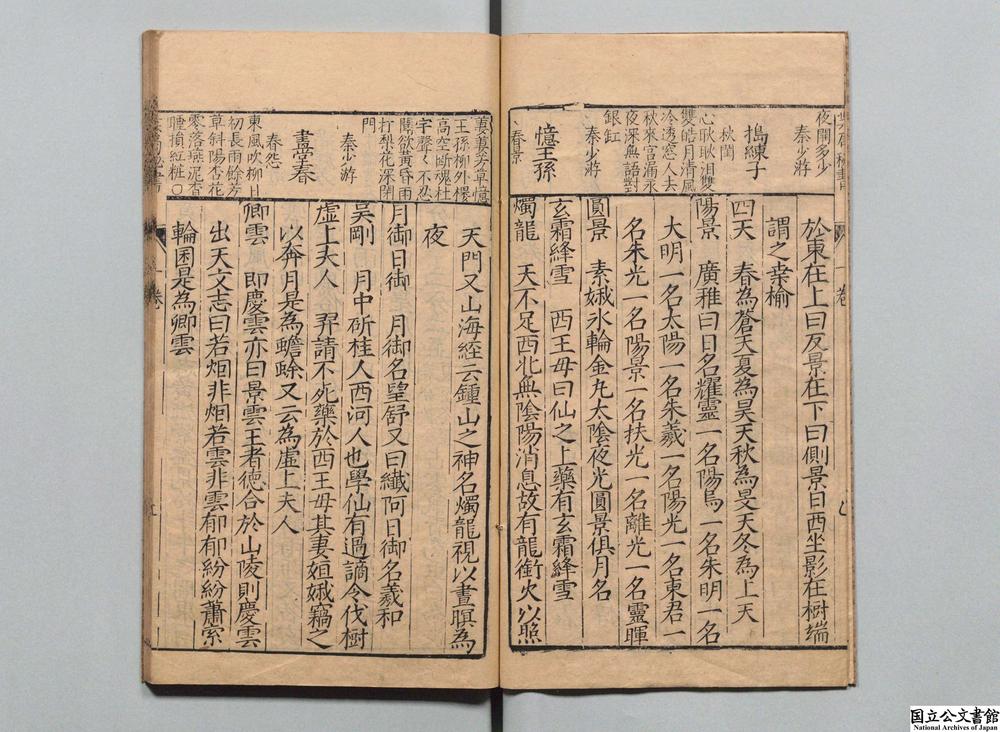 夜闌多少
秦少游
搗練子
秋閨
心耿耿淚雙
雙皓月清風
冷透窓人去
秋來宮漏永
夜深無語對
銀釭
秦少游
憶王孫
春景
於東在上曰反景在下曰側景日西坐影在樹端
謂之桒榆
四天　春為蒼天夏為昊天秋為旻天冬為上天
陽景　廣雅曰日名耀靈一名陽烏一名朱明一名
大明一名太陽一名朱羲一名陽光一名東君一
名朱光一名陽景一名扶光一名離光一名靈暉
圓景　素娥氷輪金丸太陰夜光圓景俱月名
玄霜絳雪　西王母曰仙之上藥有玄霜絳雪
燭龍　天不足西北無陰陽消息故有龍銜火以照
萋萋芳草憶
王孫柳外樓
高空斷魂杜
宇聲〻不忍
聞欲黃昏雨
打梨花深閉
門
秦少游
畫堂春
春怨
東風吹柳日
初長雨餘芳
草斜陽杏花
零落燕泥香
睡損紅粧〇
天門又山海經云鍾山之神名燭龍視以晝暝為
夜
月御日御　月御名望舒又曰纖阿日御名羲和
吳剛　月中斫桂人西河人也學仙有過謫令伐樹
虛上夫人　羿請不死藥於西王母其妻姮娥竊之
以奔月是為蟾蜍又云為虛上夫人
卿雲　即慶雲亦曰景雲王者德合於山陵則慶雲
出天文志曰若烟非烟若雲非雲郁郁紛紛蕭索
輪囷是為卿雲
国立公文書館
National Archives of Japan